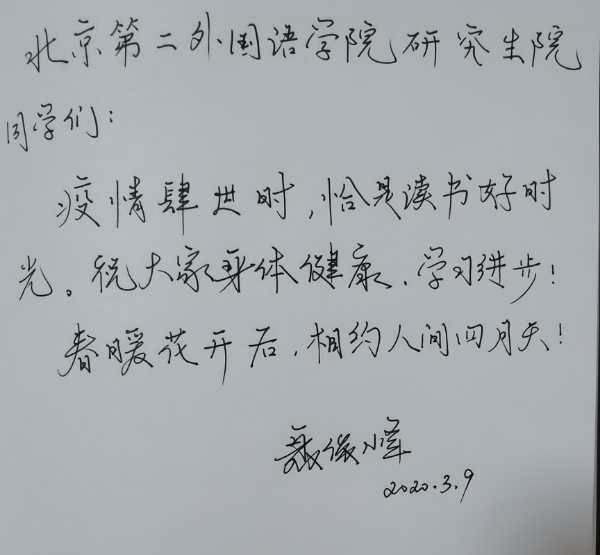 北京第二外国语学院研究生院
同学们：
疫情肆世时，恰是读书好时
光。祝大家身体健康，学习进步！
春暖花开后，相约人间四月天！
2020.3.9